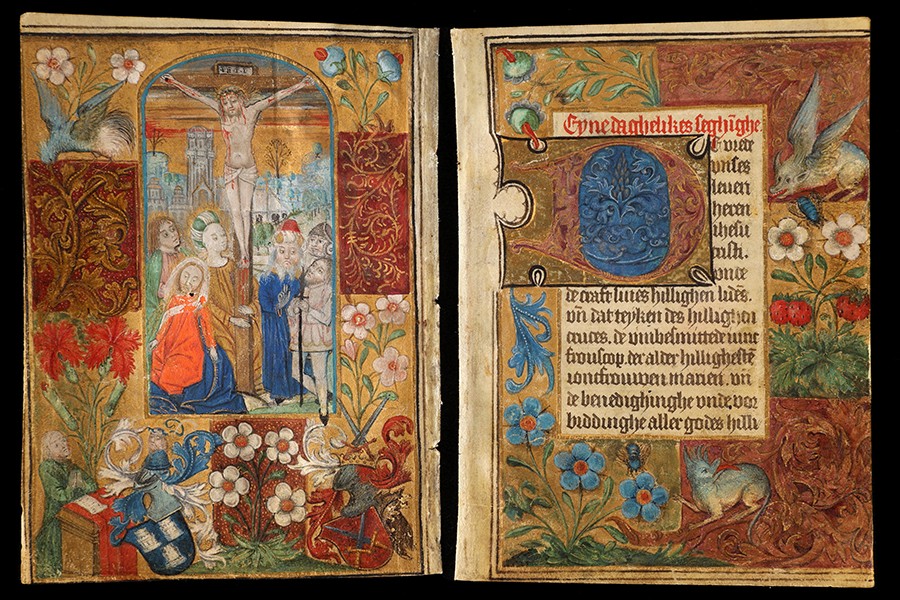 Eyne daghelikes seghīghe.
DE vrede
vnses
leuen
heren
ihesu
cristi.
vnde
de craft sines hillighen lidēs.
vn̄ dat teyken des hillighen
cruces. de vnbesmittede iunc
frouscop. der alder hillighestē
ioncfrouwen marien. vn̄
de benedighinghe vnde vor
biddinghe aller godes hilli